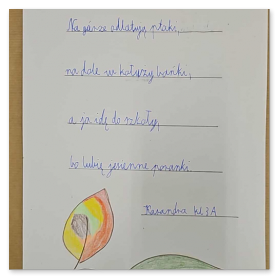 Na górze odlatują ptaki,
na dole w kałuży bańki,
a ja idę do szkoły,
bo lubię jesienne poranki.
Kasandra kl 3A